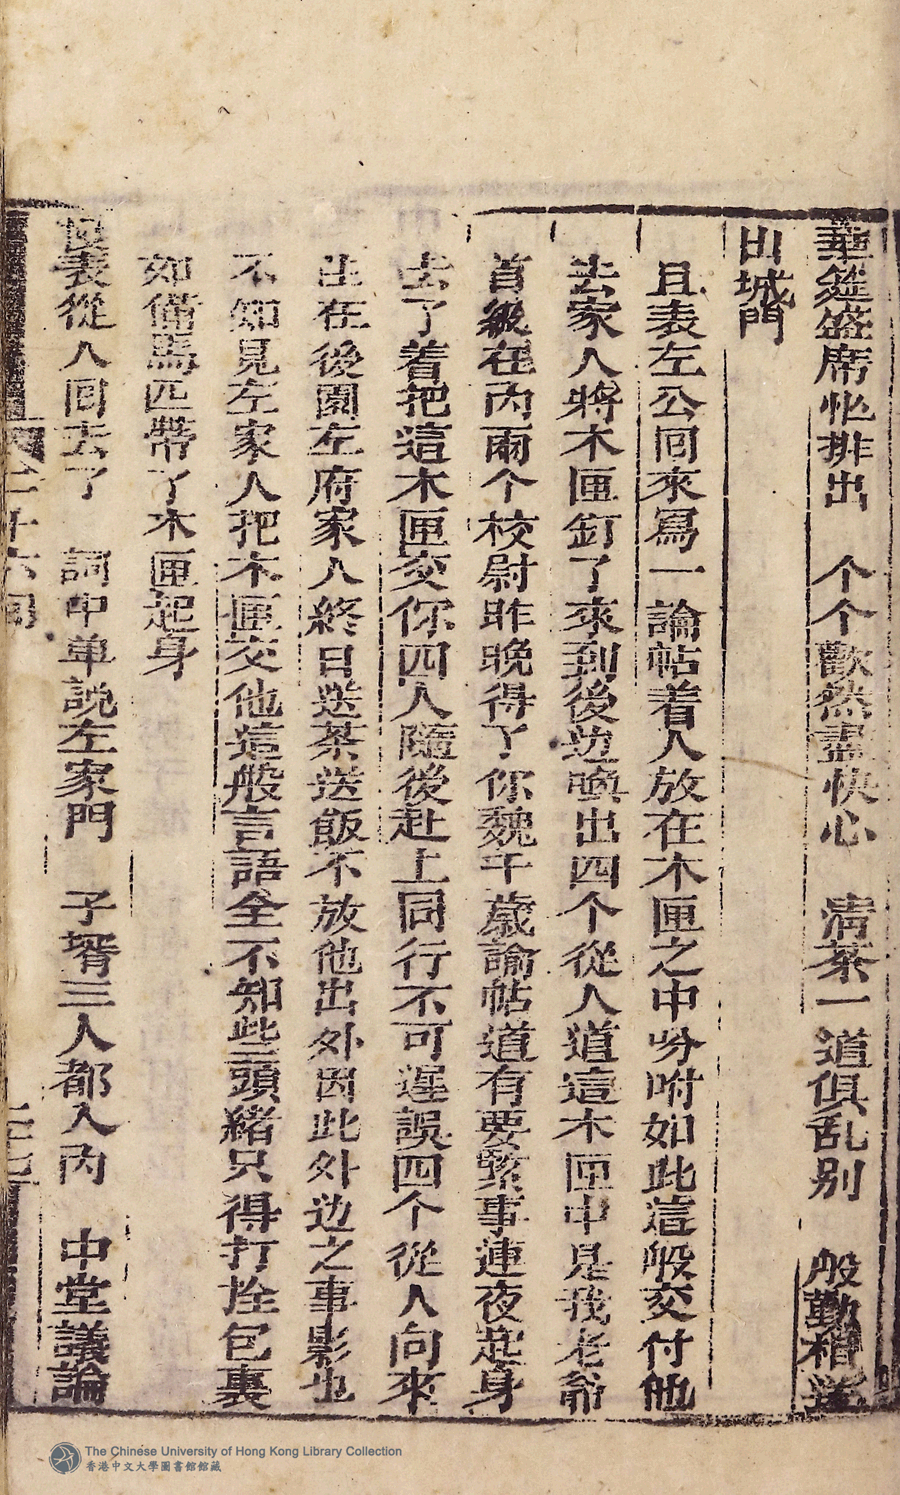 華筵盛席忙排出　个个歡然盡快心　清茶一道俱乱別　殷勤相送
出城門
且表左公回來寫一諭帖着人放在木匣之中吩咐如此這般交付他
去家人將木匣釘了來到後边喚出四个從人道這木匣中是我老爺
首級在內兩个校尉昨晚得了你魏千歲諭帖道有要緊事連夜起身
去了着把這木匣交你四人隨後赴上同行不可遲誤四个從人向來
住在後園左府家人終日送茶送飯不放他出外因此外边之事影也
不知見左家人把木匣交他這般言語全不知些頭緒只得打拴包裹
如僃馬匹帶了木匣起身
表從人回去了　詞中单説左家門　子壻三人都入內　中堂議論
十六回
The Chinese University of Hong Kong Library Collection
香港中文大學圖書館館藏